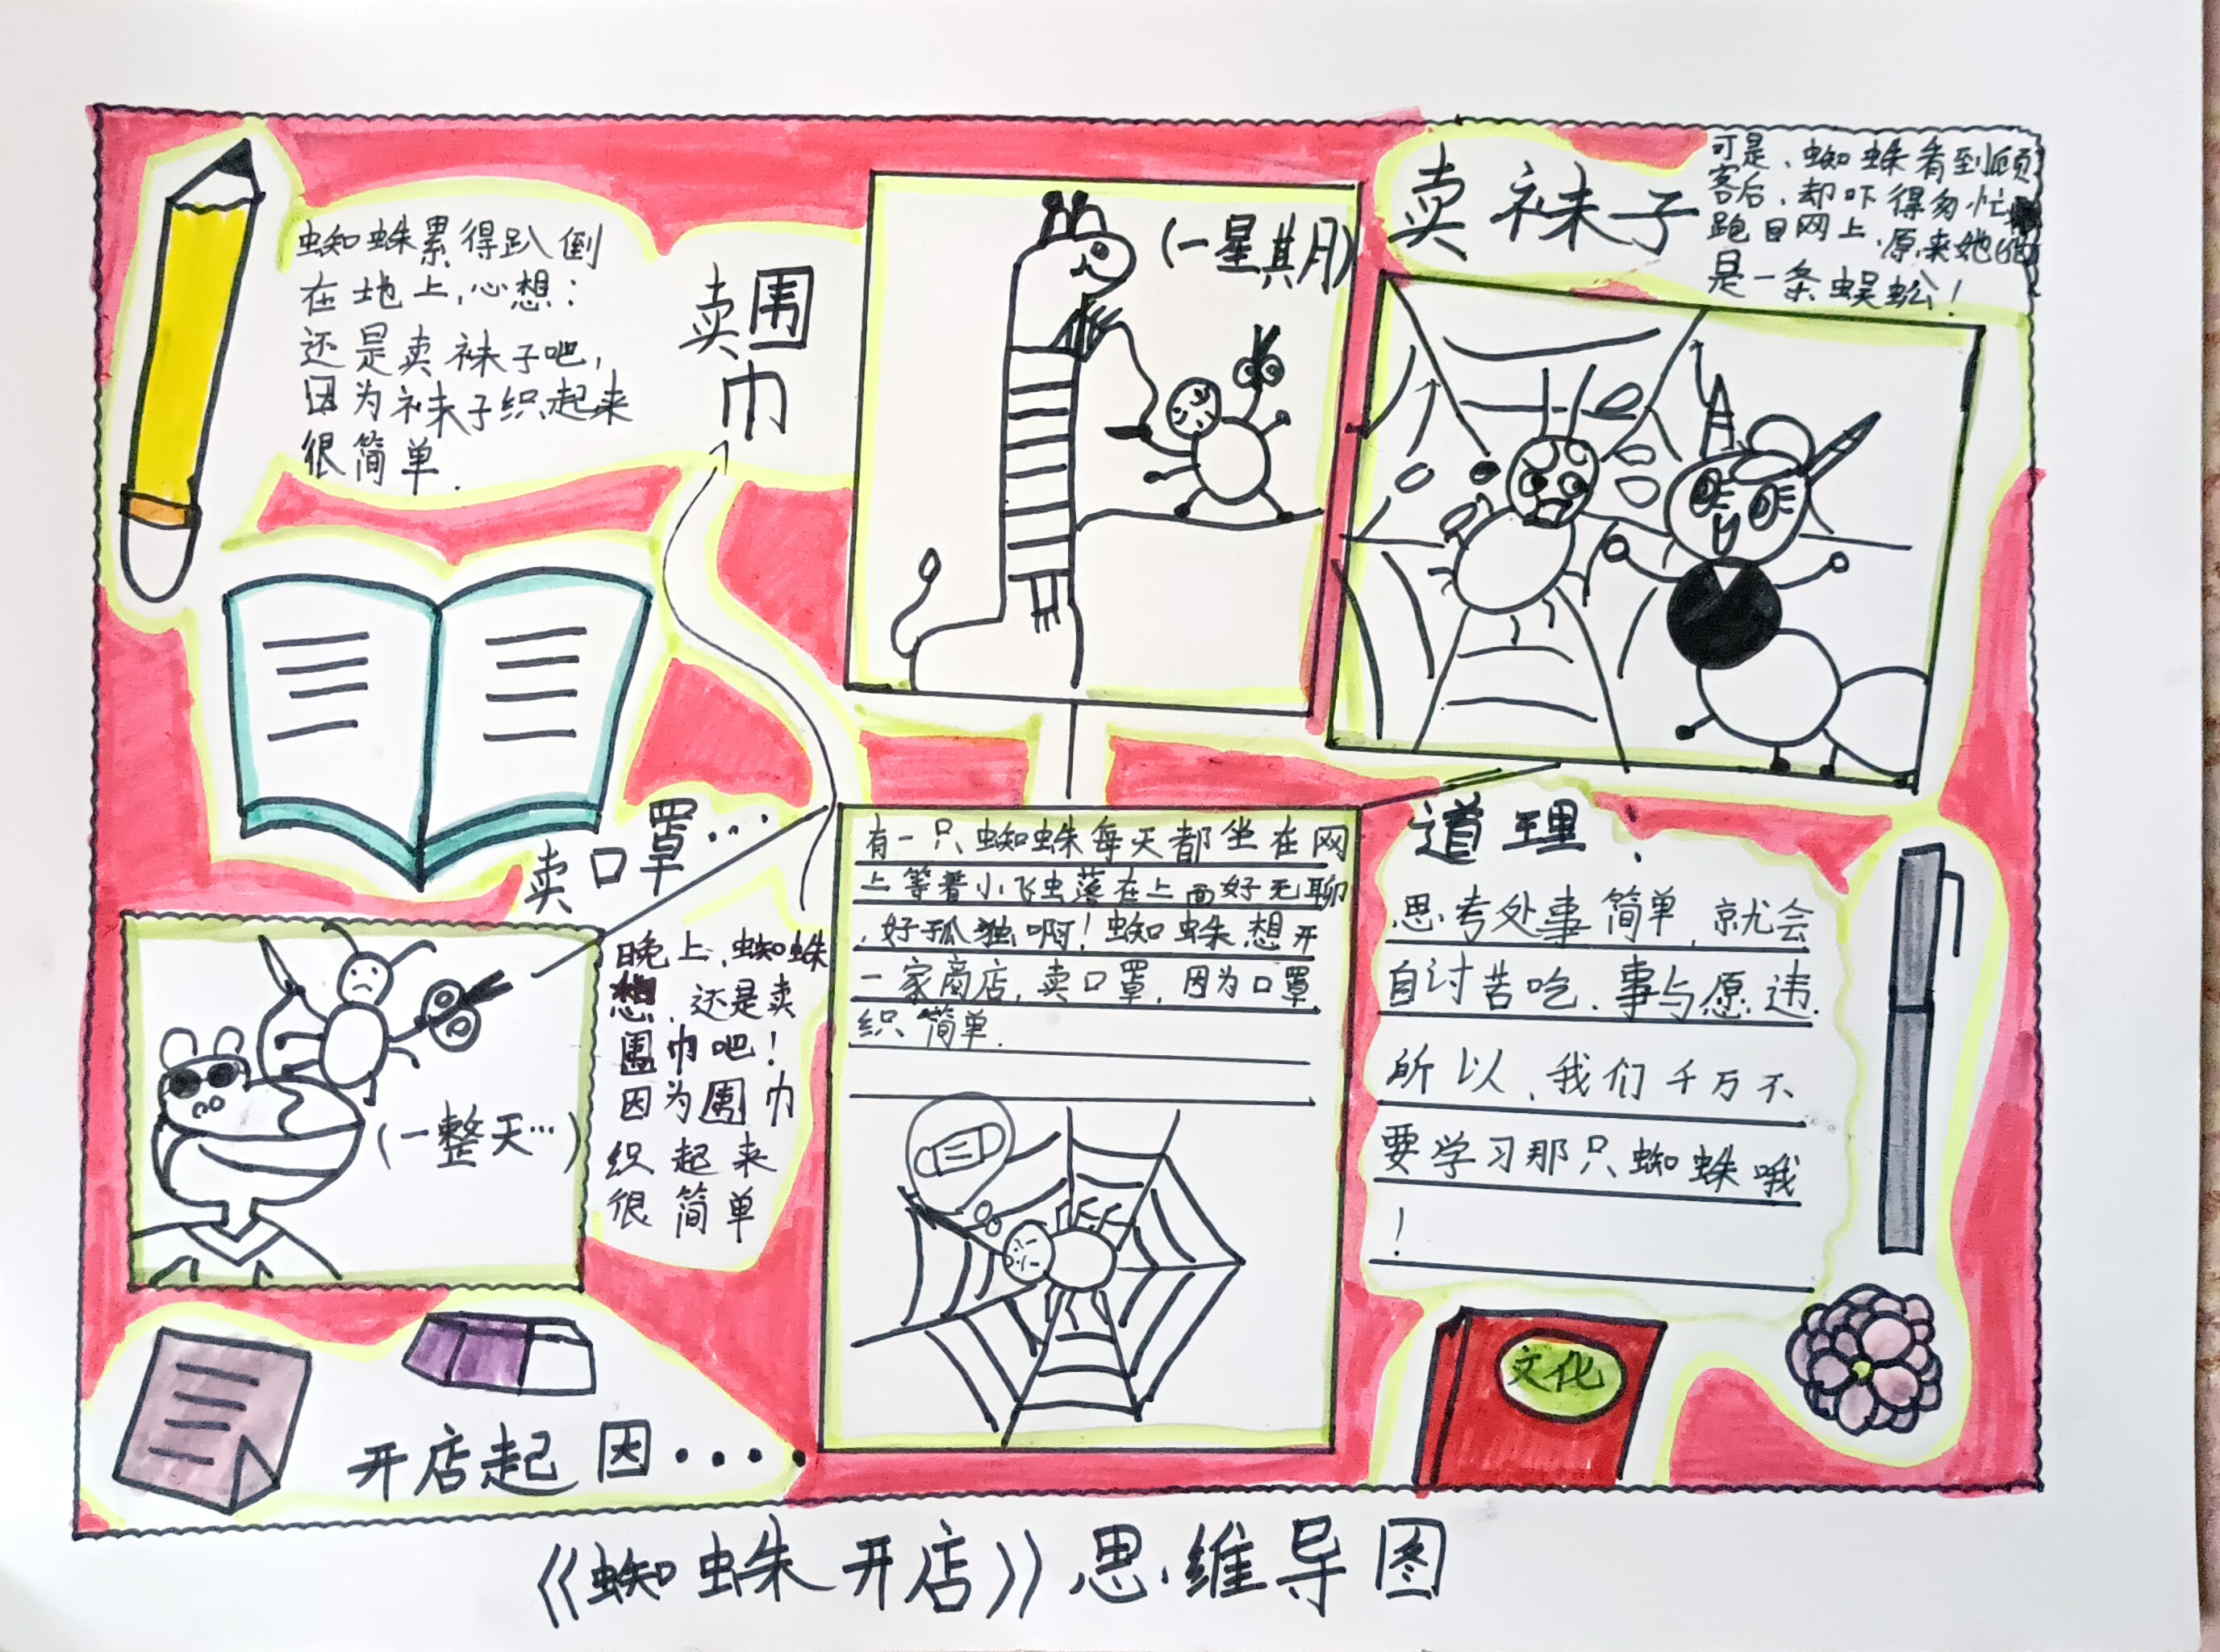 蜘蛛累得趴倒
在地上,心想:
还是卖袜子吧,
因为袜子织起来
很简单.
卖围
巾
(一星其月)
卖袜子
可是、蜘蛛看到顾
客后,却吓得匆忙
跑回网上,原来她
是一条蜈蚣!
卖口罩...
晚上,蜘蛛
想,还是卖
围巾吧!
因为围巾
织起来
很简单
(一整天…)
开店起因....
有一只蜘蛛每天都坐在网
上等着小飞虫落在上面好无聊
,好孤独啊!蜘蛛想开
一家商店,卖口罩,因为口罩
织简单.
道理、
思考处事简单,就会
自讨苦吃、事与愿违.
所以,我们千万不
要学习那只蜘蛛哦
!
文化
《蜘蛛开店》思维导图